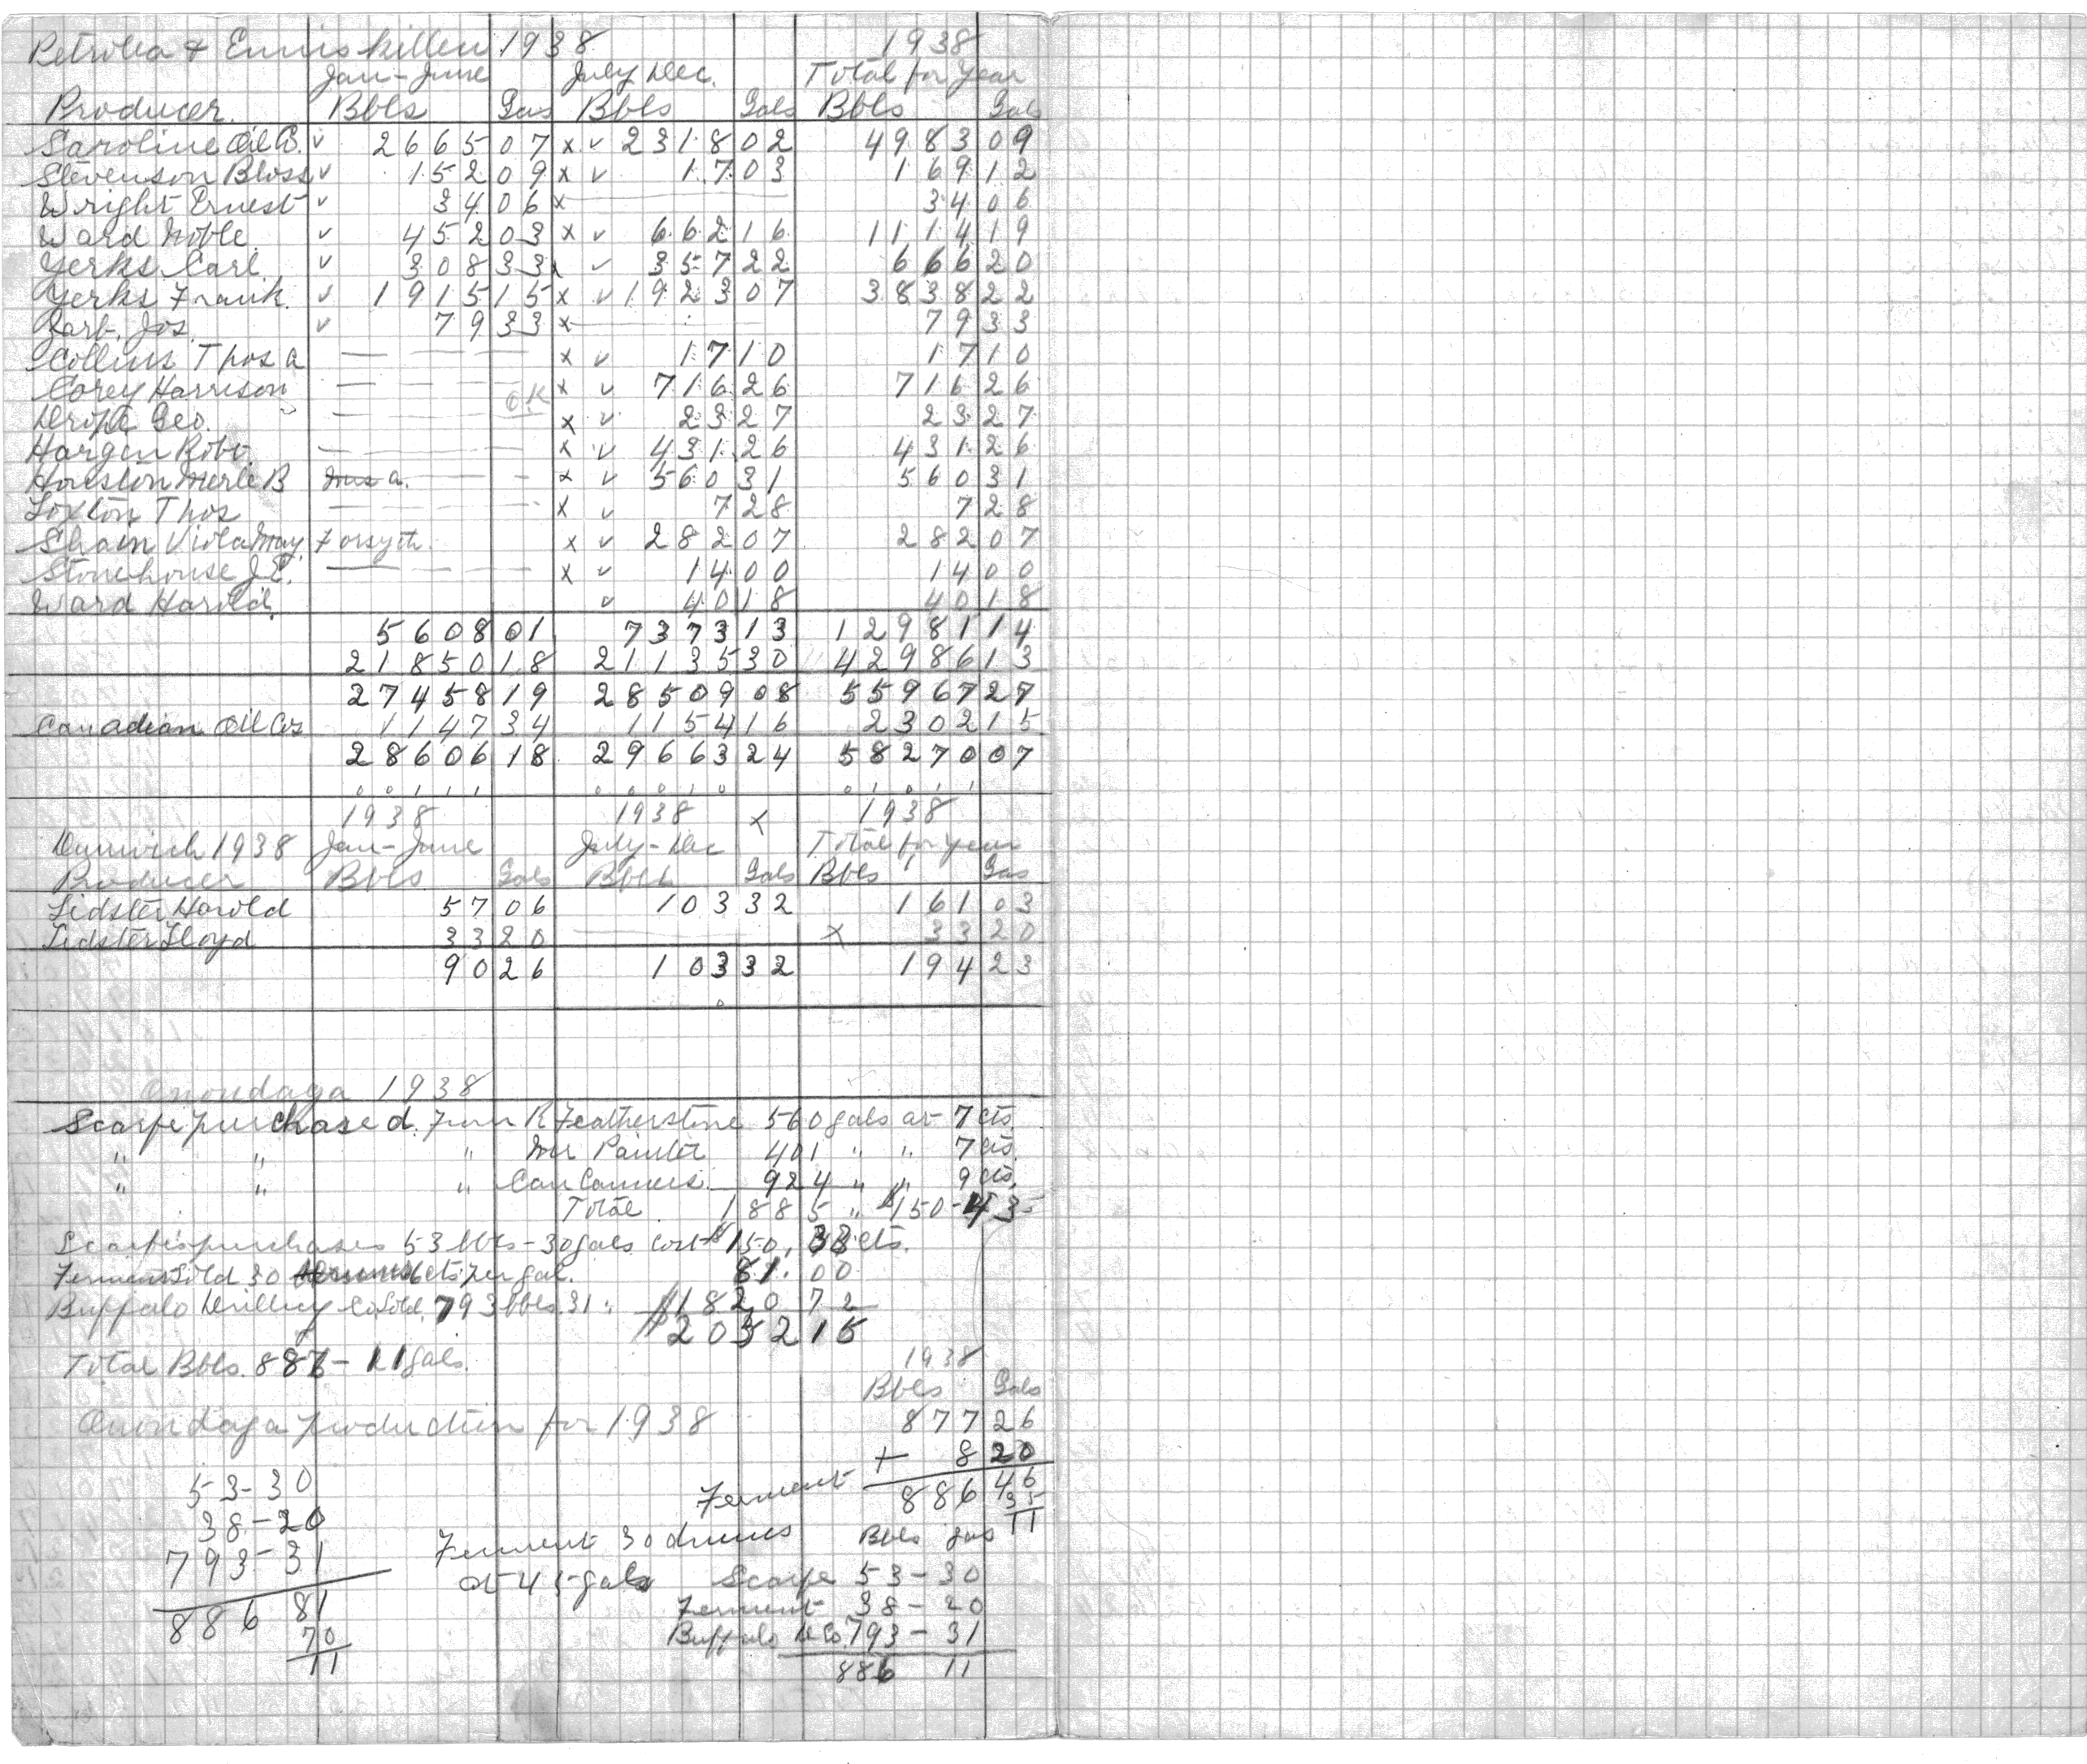 Petrolia & Enniskillen 1938 1938
Jan-June July Dec. Total for Year
Producer. Bbls Gals Bbls Gals Bbls Gals
Saroline Oil Co. v 2665 07 x v 2318 02 4983 09
Stevenson Bloss v 152 09 x v 17 03 169 12
Wright Ernest v 34 06 x — 34 06
Ward Noble v 452 03 x v 662 16 1114 19
Yerks Carl v 308 33 x v 357 22 666 20
Yerks Frank. v 1915 15 x v 1923 07 3838 22
Barb. Jos. v 79 33 x — 79 33
Collins Thos A — x v 17 10 17 10
Corey Harrison — OK x v 716 26 716 26
Drope Geo. — x v 23 27 23 27
Hargen Robt. — x v 431 26 431 26
Houston Merle B Mrs a. — x v 560 31 560 31
Loxton Thos — x v 7 28 7 28
Shain Viola May Forsyth. x v 282 07 282 07
Stonehouse J.E. — x v 14 00 14 00
Ward Harold. v 40 18 40 18
5608 01 7373 13 12981 14
21850 18 21135 30 42986 13
27458 19 28509 08 55967 27
Canadian Oil Cos 1147 34 1154 16 2302 15
28606 18 29663 24 58270 07
1938 1938 x 1938
Dunwich 1938 Jan-June July-Dec Total for year
Producer Bbls Gals Bbls Gals Bbls Gals
Lidster Harold 57 06 103 32 161 03
Lidster Lloyd 33 20 — x 33 20
90 26 103 32 194 23
Onondaga 1938
Scarfe purchased from R Featherstone 560 gals at 7 cts.
" " " Wm Painter 401 " " 7 cts.
" " " Can Canners 924 " " 9 cts.
Total 1885 " $150-43
Scarfe's purchases 53 bbls-30 gals. cost $150. 38 cts.
Ferment sold 30 6 cts per gal. 81.00
Buffalo Drilling Co sold 793 bbls. 31 " 1820 72
$2052 15
Total Bbls. 886 - 11 gals. 1938
Bbls Gals
Onondaga production for 1938 877 26
+ 8 20
Ferment 886 46
35
11
53-30
38-20
793-31
886 81
70
11
Ferment 30 drums
at 45 gals
Bbls gals
Scarfe 53-30
Ferment 38-20
Buffalo D Co. 793-31
886 11